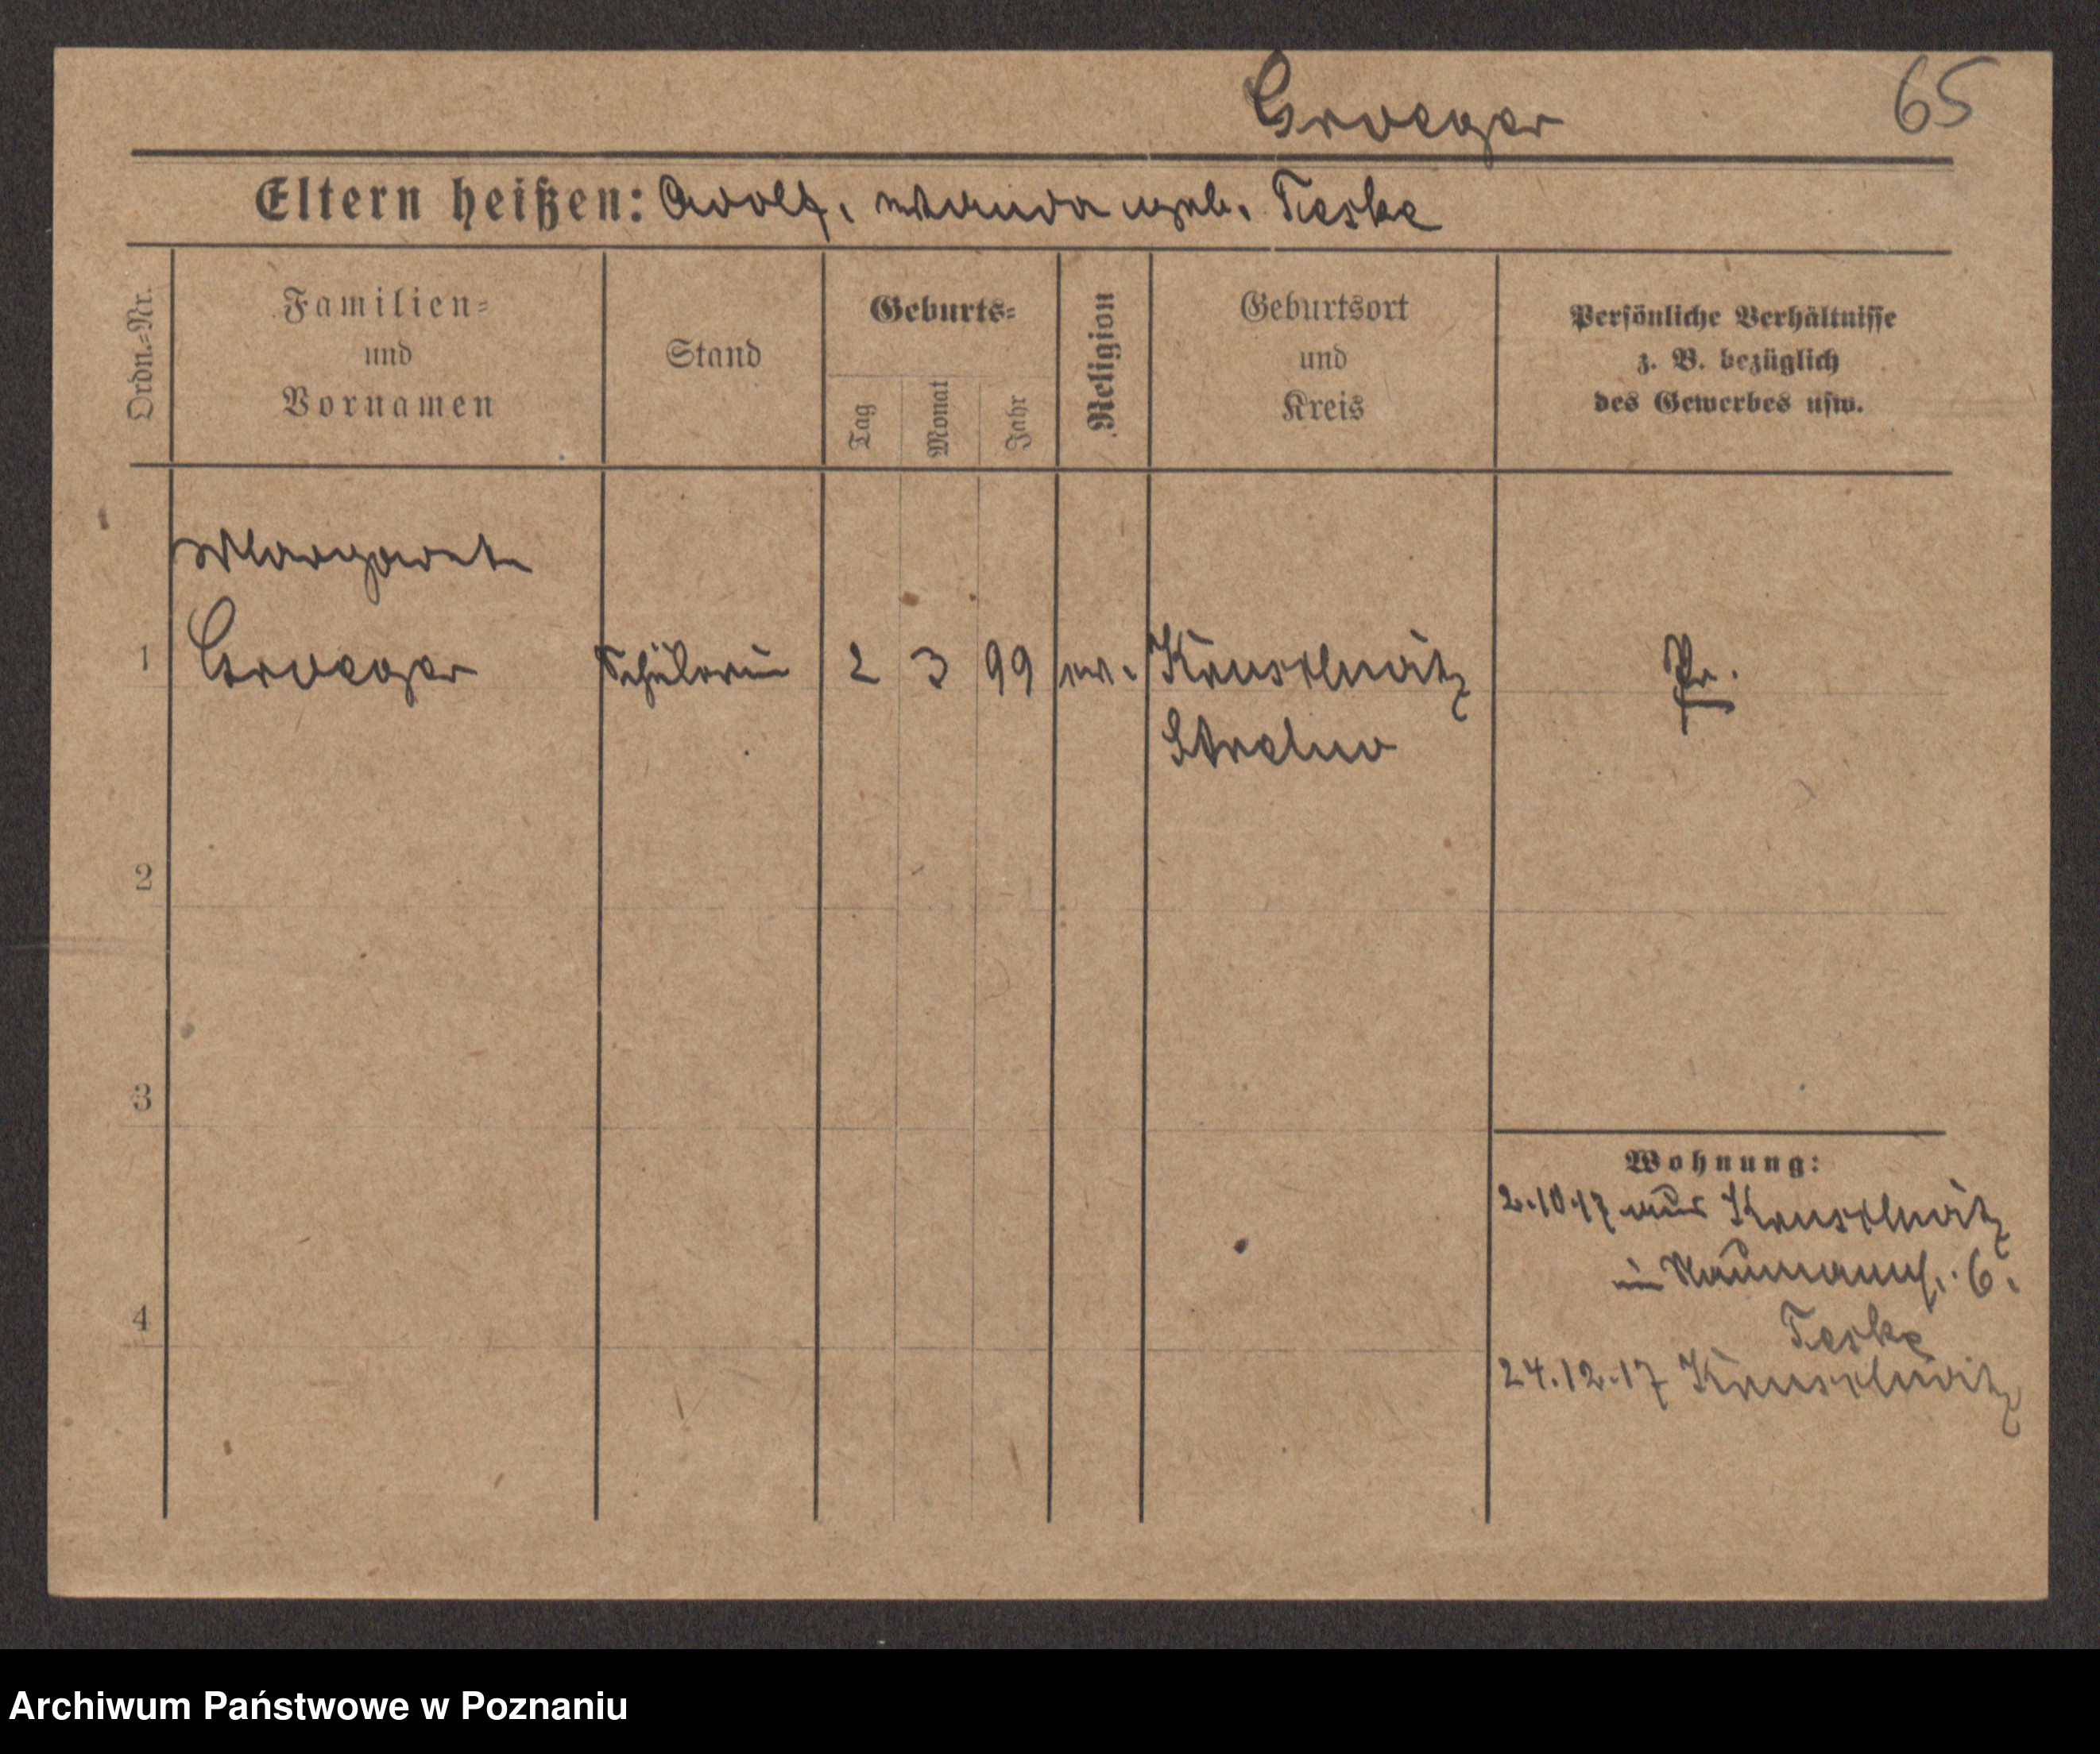 Groeger 65
Eltern heißen: Adolf, Wanda geb. Teske
Ordn.=Nr.
Familien=
und
Vornamen
Stand
Geburts=
Tag
Monat
Jahr
Religion
Geburtsort
und
Kreis
Persönliche Verhältnisse
z. B. bezüglich
des Gewerbes usw.
Margarete
1 Groeger Schülerin 2 3 99 ev. Kruschwitz Pr.
Strelno
2
3
4
Wohnung:
2.10.17 aus Kruschwitz
in Naumannst. 6.
Teske
24.12.17 Kruschwitz
Archiwum Państwowe w Poznaniu